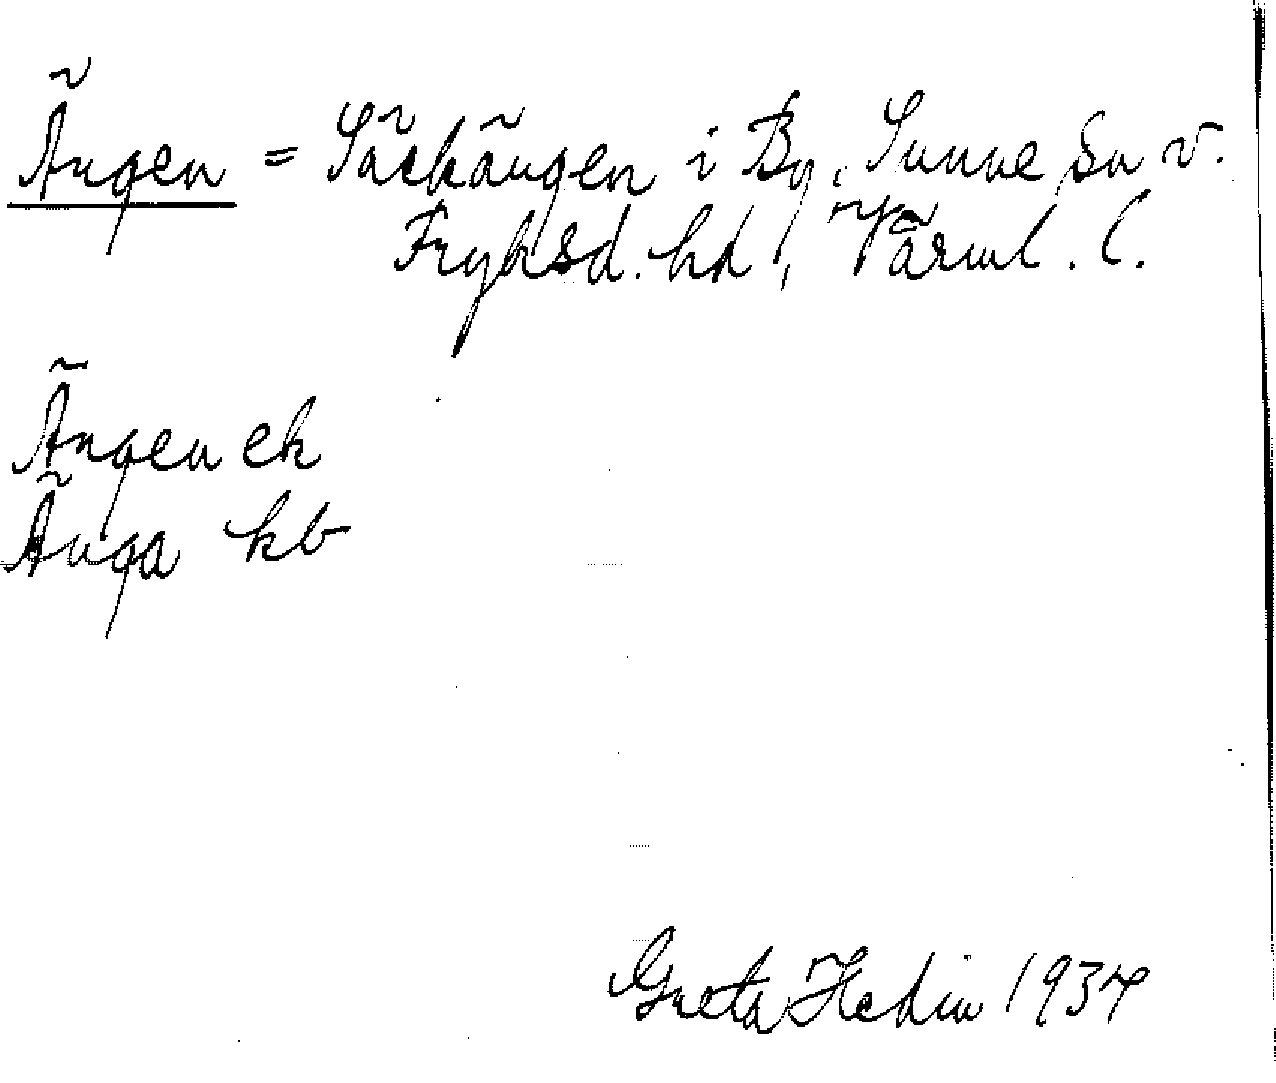 Ängen = Säckängen i By, Sunne sn v.
Fryksd. hd, Värml. l.
Ängen ek
Änga kb
Greta Hedin 1934